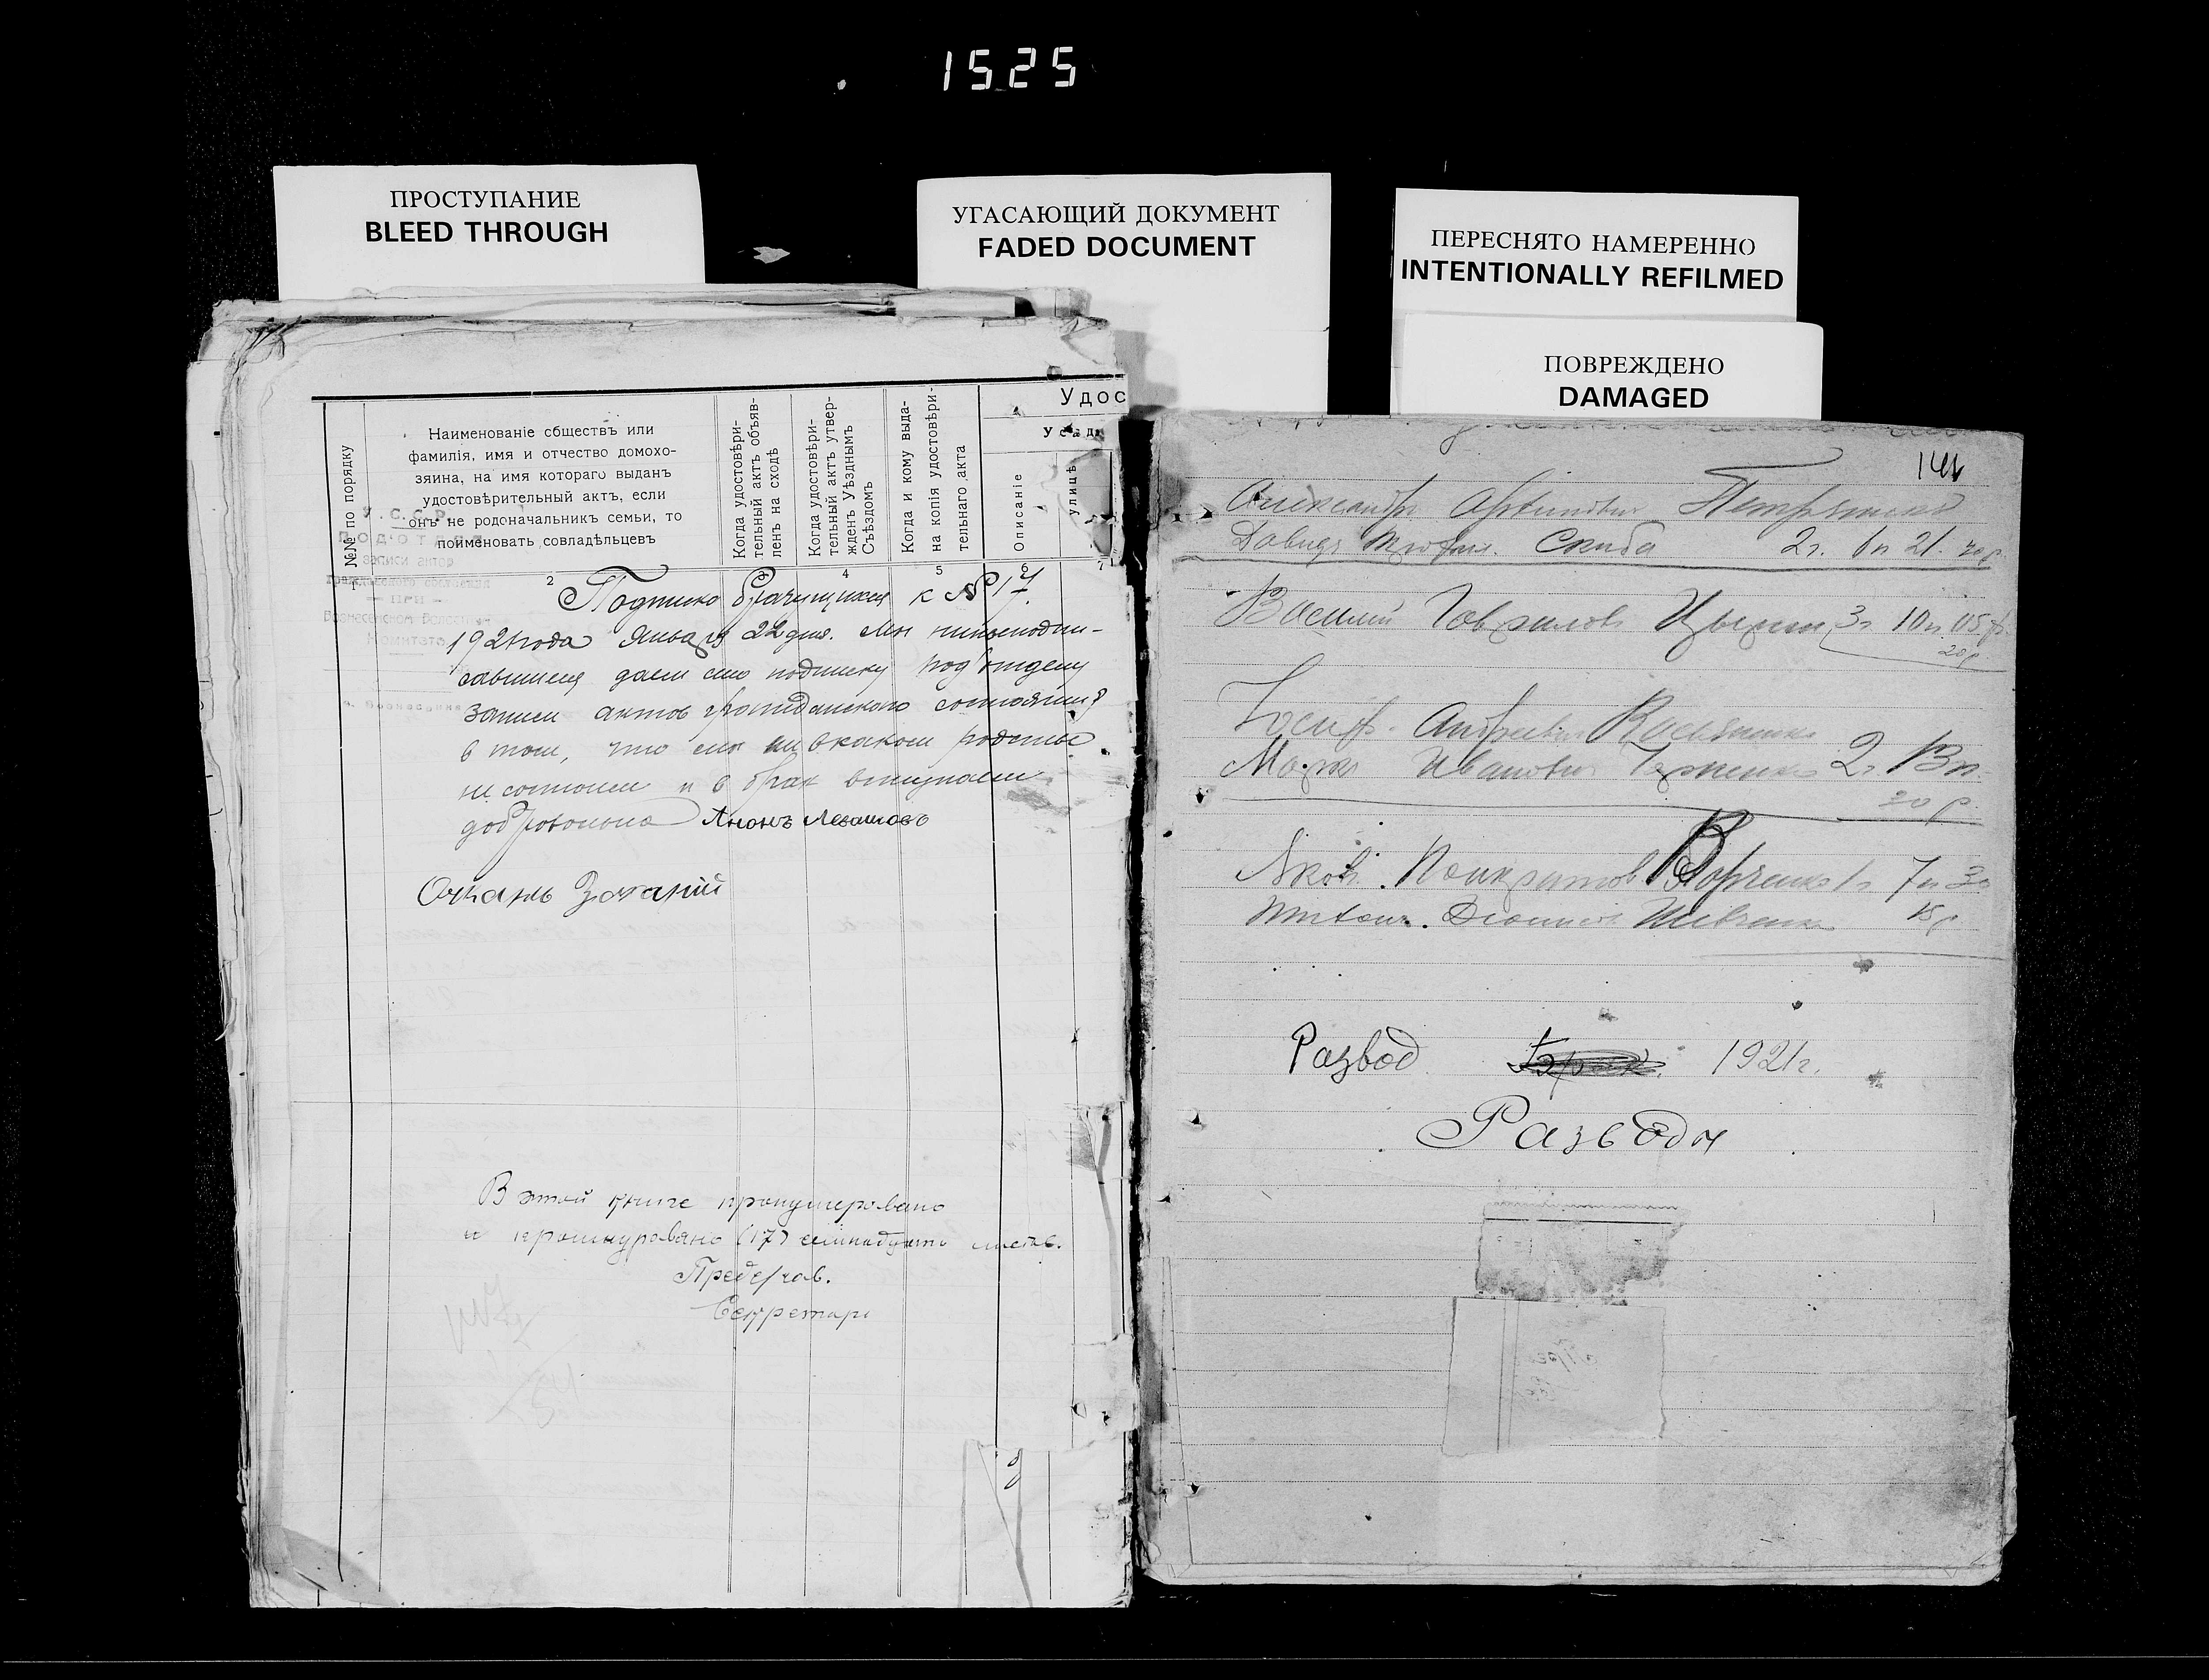 1525
ПРОСТУПАНИЕ
BLEED THROUGH
УГАСАЮЩИЙ ДОКУМЕНТ
FADED DOCUMENT
ПЕРЕСНЯТО НАМЕРЕННО
INTENTIONALLY REFILMED
ПОВРЕЖДЕНО
DAMAGED
№№ по порядку
Наименованіе обществъ или
фамилія, имя и отчество домохо-
зяина, на имя котораго выданъ
удостовѣрительный актъ, если
онъ не родоначальникъ семьи, то
поименовать совладѣльцевъ
Когда удостовѣри-
тельный актъ объяв-
ленъ на сходѣ
Когда удостовѣри-
тельный актъ утвер-
жденъ Уѣзднымъ
Съѣздомъ
Когда и кому выда-
на копія удостовѣри-
тельнаго акта
Удос
Усад
Описаніе
улицѣ
У.С.С.Р.
ПОДОТДЕЛ
записи актов
гражданского состояния
— ПРИ —
Вознесенском Волостном
Комитете
2 3 4 5 6 7
Подписка брачущихся к № 17.
1921 года Января 22 дня. Мы нижеподпи-
савшиеся даем сию подписку подотделу
записи актов гражданского состояния
в том, что мы ни в каком родстве
не состоим и в брак вступаем
добровольно
Очкань Захарій
В этой книге пронумеровано
и прошнуровано (17) семнадцать листов.
Председав.
Секретарь
Александр Петренко
Давид Скиба 2г. 6п 21. 20р
Василий Гаврилов 3г 10п. 05ф.
20р.
Иосиф Андреевич Касьяненко
Марк Иванович 2г. 13п.
20 р.
Яков Панкратов 1г 7п 30
Шевченко 15р
Развод Брак. 1921г.
Разводы